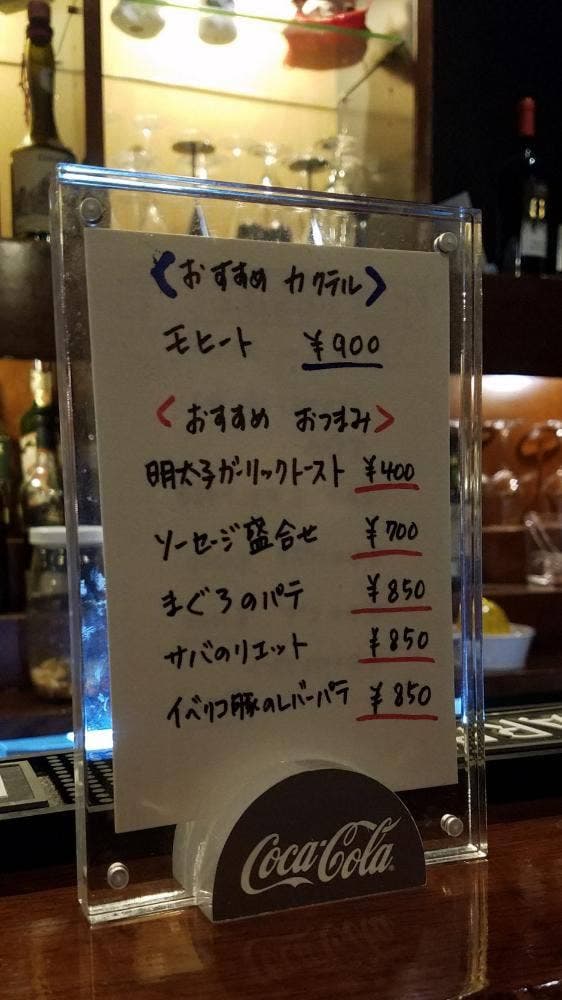 <おすすめ カクテル>
モヒート ¥900
<おすすめ おつまみ>
明太子ガーリックトースト ¥400
ソーセージ盛合せ ¥700
まぐろのパテ ¥850
サバのリエット ¥850
イベリコ豚のレバーパテ ¥850
Coca-Cola